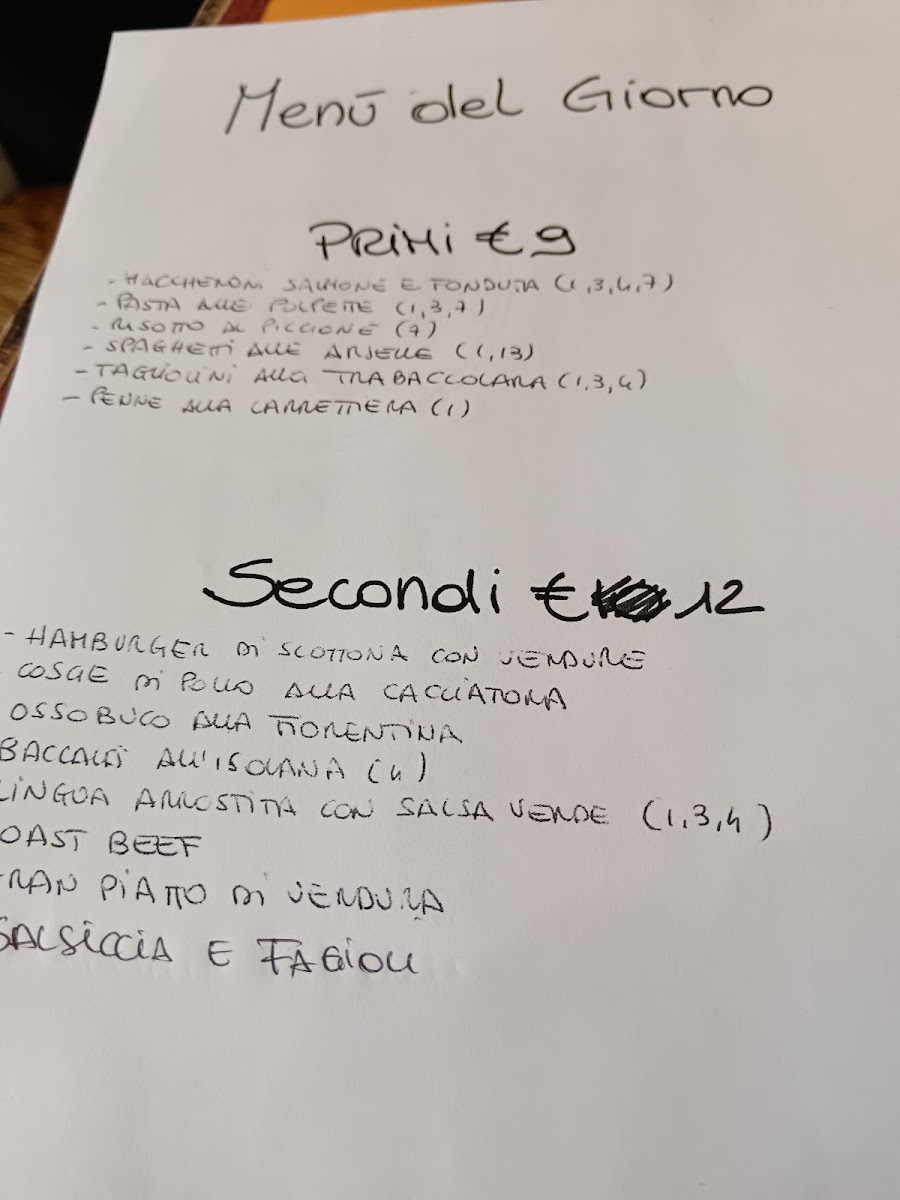 Menū del Giorno
PRIMI € 9
- MACCHERONI SALMONE E FONDUTA (1,3,4,7)
- PASTA ALLE POLPETTE (1,3,7)
- RISOTTO AL PICCIONE (9)
- SPAGHETTI ALLE ARSELLE (1,13)
- TAGLIOLINI ALLA TRABACCOLARA (1,3,4)
- PENNE ALLA CARRETTIERA (1)
Secondi € 12
- HAMBURGER DI SCOTTONA CON VERDURE
COSCE DI POLLO ALLA CACCIATORA
OSSOBUCO ALLA FIORENTINA
BACCALÀ ALL'ISOLANA (4)
LINGUA ARROSTITA CON SALSA VERDE (1,3,4)
OAST BEEF
RAN PIATTO DI VERDURA
SALSICCIA E FAGIOLI